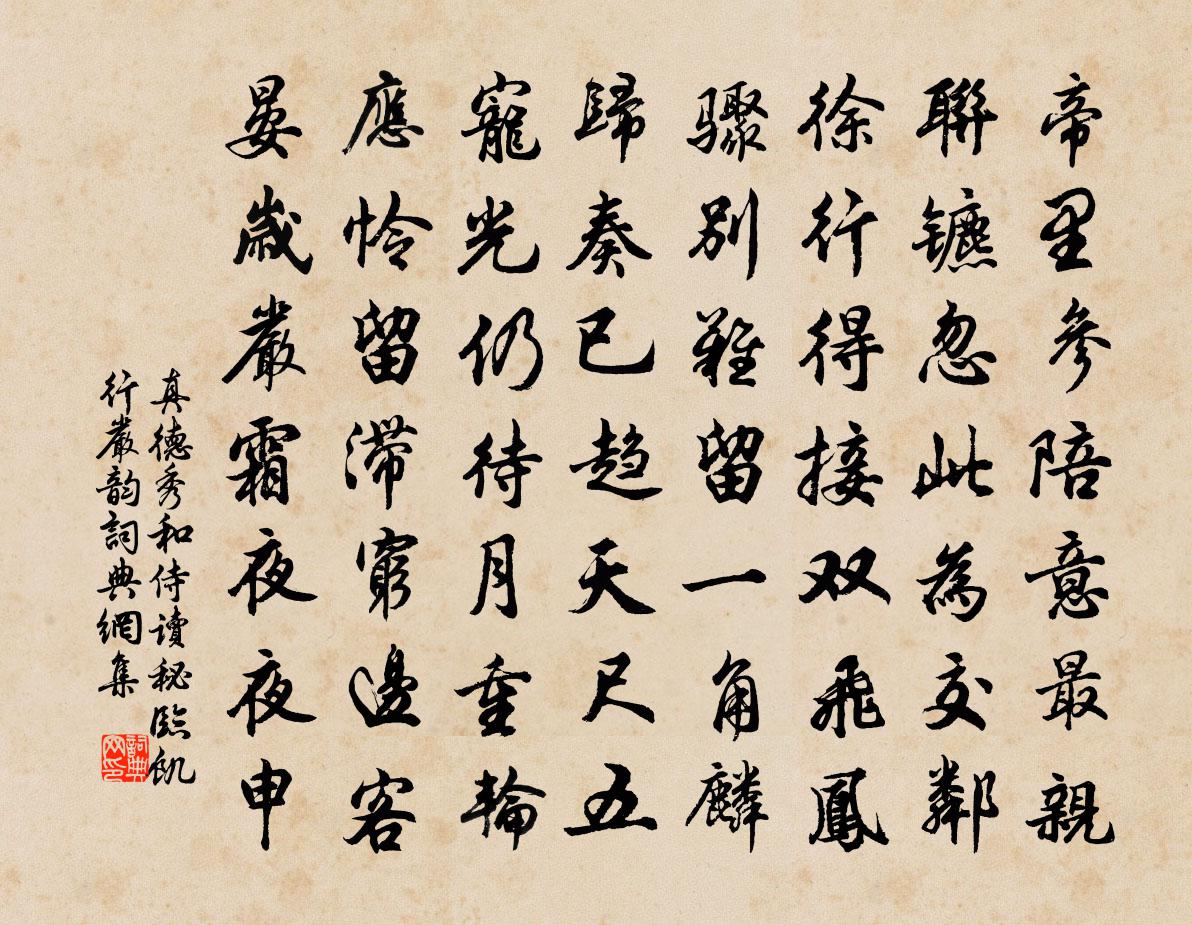 帝里參陪意最親
聯镳忽此為交鄰
徐行得接双飛鳳
驟別難留一角麟
歸奏已趋天尺五
寵光仍待月重輪
應怜留滯窮邊客
晏歲嚴霜夜夜申
真德秀和侍讀秘臨飢
行嚴韵詞典網集
詞典网印